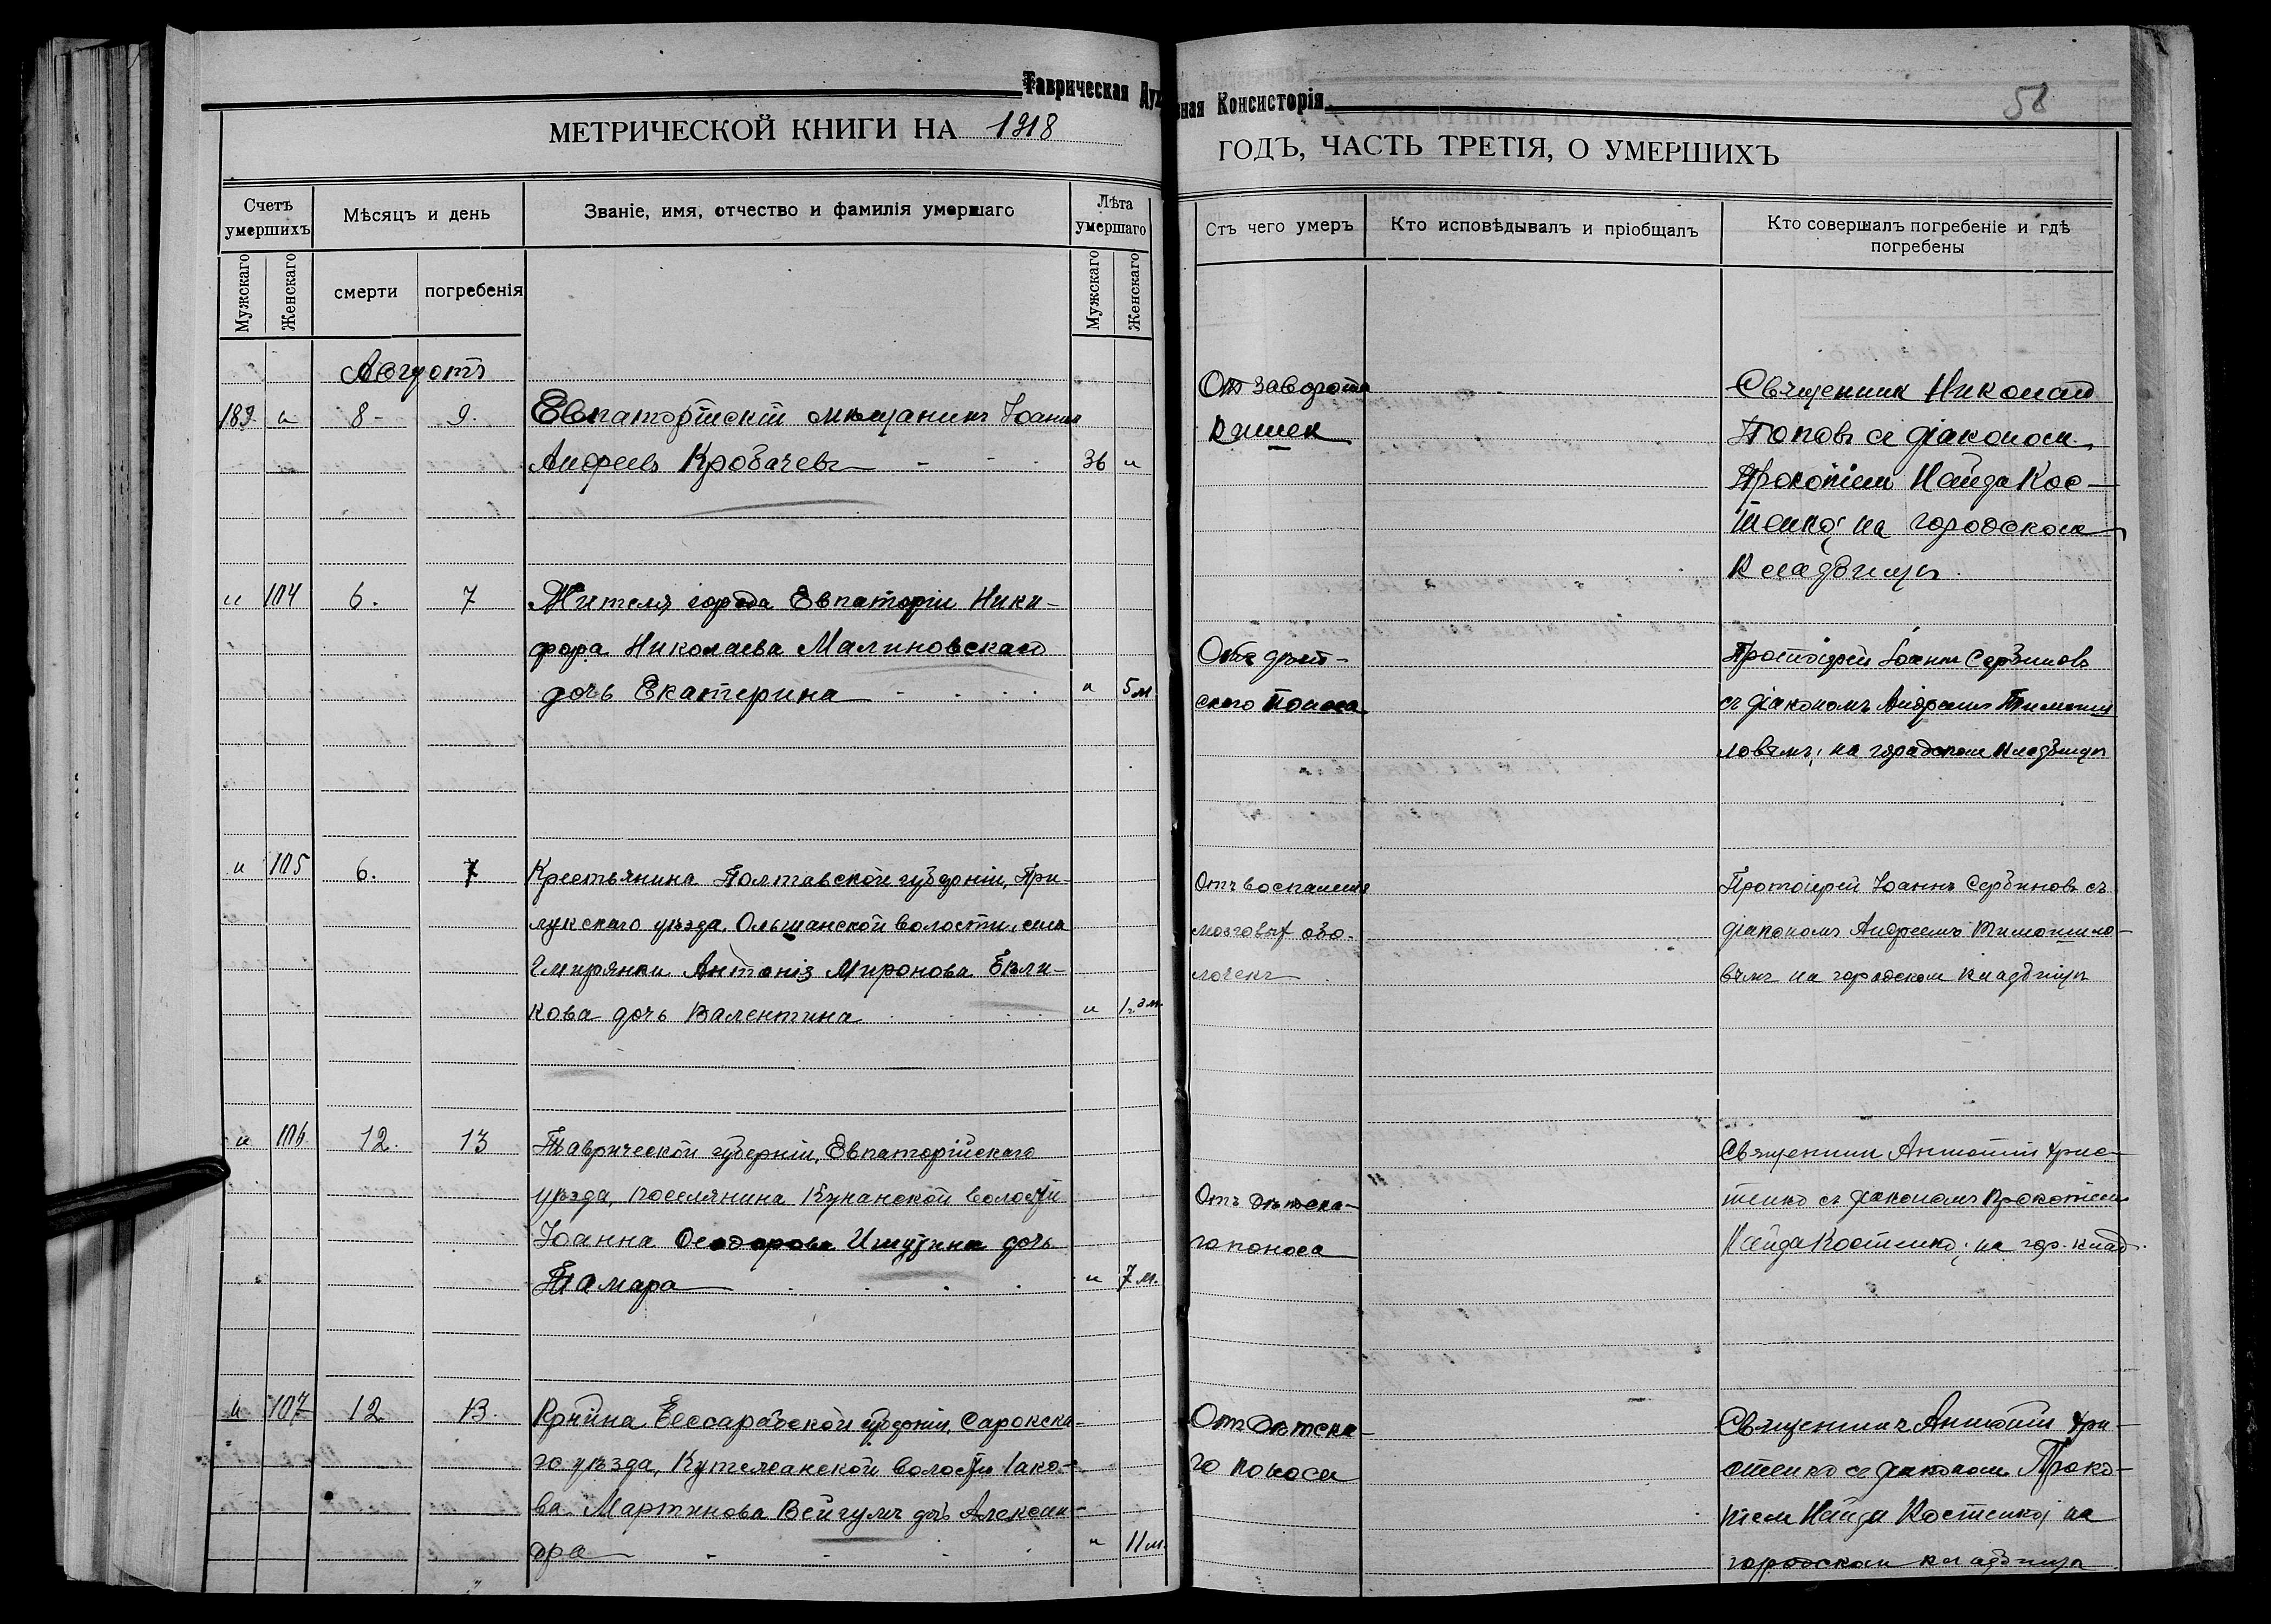 Таврическая Духовная Консисторія
58
МЕТРИЧЕСКОЙ КНИГИ НА 1918
ГОДЪ, ЧАСТЬ ТРЕТІЯ, О УМЕРШИХЪ
Счетъ умершихъ
Мѣсяцъ и день
Званіе, имя, отчество и фамилія умершаго
Лѣта умершаго
Отъ чего умеръ
Кто исповѣдывалъ и пріобщалъ
Кто совершалъ погребеніе и гдѣ погребены
Мужскаго
Женскаго
смерти
погребенія
Мужскаго
Женскаго
Августъ
189 " 8 - 9.
Евпаторійскій мѣщанинъ Іоаннъ
Андреевъ Кробачевъ - - - 36 "
От заворота
кишек
Священник Никонат
Поповъ с діаконом
Прокопіем Найда Кос-
тенко; на городском
кладбищѣ.
" 104 6. 7
Жителя города Евпаторіи Ники-
фора Николаева Малиновскаго
дочь Екатерина - - - - " 5 м
Отъ дѣт-
ского поноса
Протоіерей Іоаннъ Сербиновъ
съ діакономъ Андреемъ
на городском кладбищѣ
" 105 6. 7
Крестьянина Полтавской губерніи, При-
лукскаго уѣзда, Ольшанской волости, села
Антоніз Миронова
кова дочь Валентина " 1 г. 3 м.
Отъ воспаленія
мозговых обо-
лочекъ
Протоіерей Іоаннъ Сербиновъ съ
діакономъ Андреемъ
вымъ на городском кладбищѣ
" 106 12. 13
Таврической губерніи, Евпаторійскаго
уѣзда, поселянина волости
Іоанна Ѳеодорова Ишутина дочь
Тамара - - - - " 7 м.
Отъ дѣтска-
го поноса
Священник
тенко съ діакономъ Прокопіем
Найда Костенко; на гор. клад.
" 107 12 13.
Кр-нина Бессарабской губерніи, Сарокска-
го уѣзда, волости Іако-
ва Мартинова Вейгумъ дочь Алексан-
дра - - - - " 11 м.
От дѣтска-
го поноса
Священник
стенко с діаконом Проко-
піем Найда Костенко; на
городском кладбищѣ